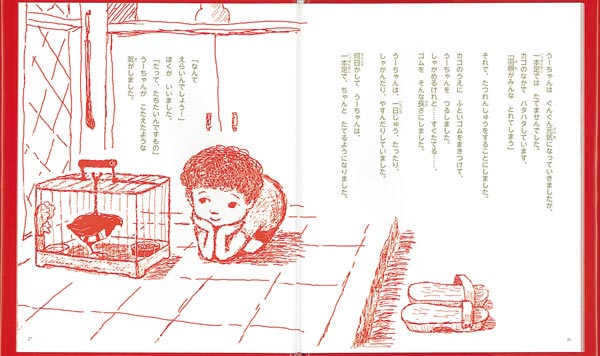 うーちゃんは ぐんぐん元気になっていきましたが、
一本足では たてませんでした。
カゴのなかで バタバタしています。
「羽根がみんな とれてしまう」
それで、たつれんしゅうをすることにしました。
カゴのうえに ふといゴムをまきつけて、
うーちゃんを つるしました。
しゃがめるけれど……すぐたてる……、
ゴムを そんな長さにしました。
うーちゃんは、一日じゅう、たったり、
しゃがんだり、やすんだりしていました。
何日かして うーちゃんは、
一本足で、ちゃんと たてるようになりました。
26
「なんて
えらいんでしょう！」
ぼくが いいました。
「だって、たちたいんですもの」
うーちゃんが こたえたような
気がしました。
27